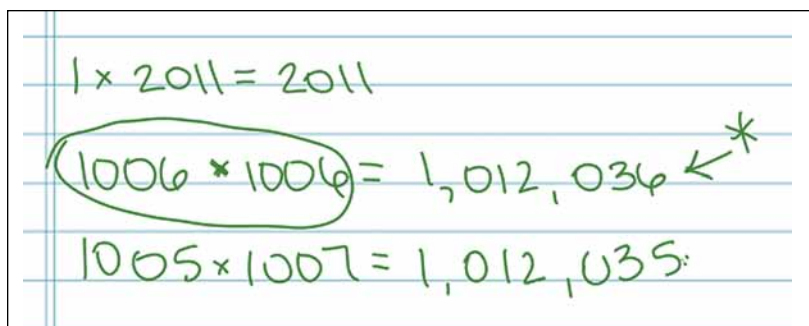 1 × 2011 = 2011
1006 × 1006 = 1,012,036 ← *
1005 × 1007 = 1,012,035